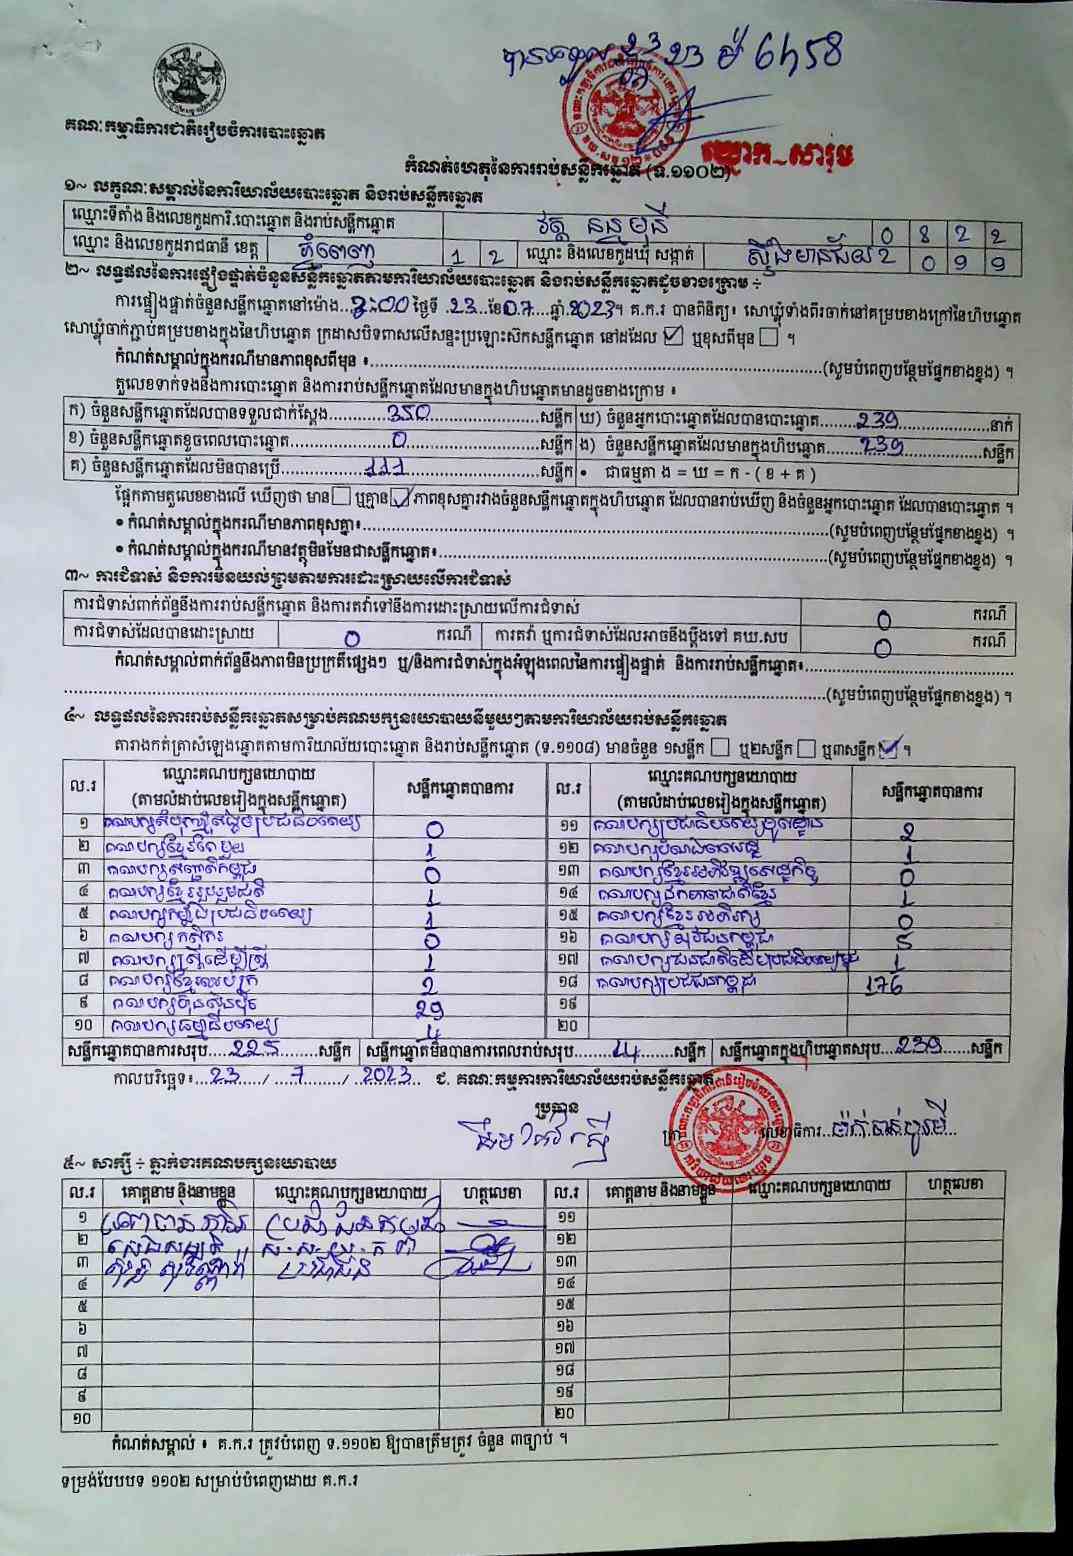 គណៈកម្មាធិការជាតិរៀបចំការបោះឆ្នោត
កំណត់ហេតុនៃការរាប់សន្លឹកឆ្នោត (ទ.១១០២)
១~ លក្ខណៈសម្គាល់នៃការិយាល័យបោះឆ្នោត និងរាប់សន្លឹកឆ្នោត
ឈ្មោះទីតាំង និងលេខកូដការិ.បោះឆ្នោត និងរាប់សន្លឹកឆ្នោត វត្ត 0 8 2 2
ឈ្មោះ និងលេខកូដរាជធានី ខេត្ត ភ្នំពេញ 1 2 ឈ្មោះ និងលេខកូដឃុំ សង្កាត់ ស្ទឹងមានជ័យ2 0 9 9
២~ លទ្ធផលនៃការផ្ទៀងផ្ទាត់ចំនួនសន្លឹកឆ្នោតតាមការិយាល័យបោះឆ្នោត និងរាប់សន្លឹកឆ្នោតដូចខាងក្រោម ÷
ការផ្ទៀងផ្ទាត់ចំនួនសន្លឹកឆ្នោតនៅម៉ោង...:00 ថ្ងៃទី .23...ខែ.07....ឆ្នាំ.2023។ គ.ក.រ បានពិនិត្យ៖ សោឃ្លុំទាំងពីរចាក់នៅគម្របខាងក្រៅនៃហិបឆ្នោត
សោឃ្លុំចាក់ភ្ជាប់គម្របខាងក្នុងនៃហិបឆ្នោត ក្រដាសបិទពាសលើសន្ទះប្រឡោះស៊កសន្លឹកឆ្នោត នៅដដែល ☑ ឬខុសពីមុន ☐ ។
កំណត់សម្គាល់ក្នុងករណីមានភាពខុសពីមុន ៖..........(សូមបំពេញបន្ថែមផ្នែកខាងខ្នង) ។
តួលេខទាក់ទងនឹងការបោះឆ្នោត និងការរាប់សន្លឹកឆ្នោតដែលមានក្នុងហិបឆ្នោតមានដូចខាងក្រោម ៖
ក) ចំនួនសន្លឹកឆ្នោតដែលបានទទួលជាក់ស្តែង..........350..........សន្លឹក ឃ) ចំនួនអ្នកបោះឆ្នោតដែលបានបោះឆ្នោត........239..........នាក់
ខ) ចំនួនសន្លឹកឆ្នោតខូចពេលបោះឆ្នោត..........0..........សន្លឹក ង) ចំនួនសន្លឹកឆ្នោតដែលមានក្នុងហិបឆ្នោត........239..........សន្លឹក
គ) ចំនួនសន្លឹកឆ្នោតដែលមិនបានប្រើ..........111..........សន្លឹក • ជាធម្មតា ង = ឃ = ក - ( ខ + គ )
ផ្អែកតាមតួលេខខាងលើ ឃើញថា មាន ☐ ឬគ្មាន ☑ ភាពខុសគ្នារវាងចំនួនសន្លឹកឆ្នោតក្នុងហិបឆ្នោត ដែលបានរាប់ឃើញ និងចំនួនអ្នកបោះឆ្នោត ដែលបានបោះឆ្នោត ។
• កំណត់សម្គាល់ក្នុងករណីមានភាពខុសគ្នា៖..........(សូមបំពេញបន្ថែមផ្នែកខាងខ្នង) ។
• កំណត់សម្គាល់ក្នុងករណីមានវត្ថុមិនមែនជាសន្លឹកឆ្នោត៖..........(សូមបំពេញបន្ថែមផ្នែកខាងខ្នង) ។
៣~ ការជំទាស់ និងការមិនយល់ព្រមតាមការដោះស្រាយលើការជំទាស់
ការជំទាស់ពាក់ព័ន្ធនឹងការរាប់សន្លឹកឆ្នោត និងការតវ៉ាទៅនឹងការដោះស្រាយលើការជំទាស់ 0 ករណី
ការជំទាស់ដែលបានដោះស្រាយ 0 ករណី ការតវ៉ា ឬការជំទាស់ដែលអាចនឹងប្តឹងទៅ គឃ.សប 0 ករណី
កំណត់សម្គាល់ពាក់ព័ន្ធនឹងភាពមិនប្រក្រតីផ្សេងៗ ឬ/និងការជំទាស់ក្នុងអំឡុងពេលនៃការផ្ទៀងផ្ទាត់ និងការរាប់សន្លឹកឆ្នោត៖..........
..........(សូមបំពេញបន្ថែមផ្នែកខាងខ្នង) ។
៤~ លទ្ធផលនៃការរាប់សន្លឹកឆ្នោតសម្រាប់គណបក្សនយោបាយនីមួយៗតាមការិយាល័យរាប់សន្លឹកឆ្នោត
តារាងកត់ត្រាសំឡេងឆ្នោតតាមការិយាល័យបោះឆ្នោត និងរាប់សន្លឹកឆ្នោត (ទ.១១០៨) មានចំនួន ១សន្លឹក ☐ ឬ២សន្លឹក ☐ ឬ៣សន្លឹក ☑ ។
ល.រ ឈ្មោះគណបក្សនយោបាយ (តាមលំដាប់លេខរៀងក្នុងសន្លឹកឆ្នោត) សន្លឹកឆ្នោតបានការ ល.រ ឈ្មោះគណបក្សនយោបាយ (តាមលំដាប់លេខរៀងក្នុងសន្លឹកឆ្នោត) សន្លឹកឆ្នោតបានការ
១ គណបក្សសំបុកឃ្មុំសង្គមប្រជាធិបតេយ្យ 0 ១១ គណបក្សប្រជាធិបតេយ្យមូលដ្ឋាន 2
២ គណបក្សខ្មែរតែមួយ 1 ១២ 1
៣ គណបក្សសញ្ជាតិកម្ពុជា 0 ១៣ គណបក្សខ្មែរអភិវឌ្ឍន៍សេដ្ឋកិច្ច 0
៤ គណបក្សខ្មែររួបរួមជាតិ 1 ១៤ គណបក្សឯកភាពជាតិខ្មែរ 1
៥ គណបក្សកម្លាំងប្រជាធិបតេយ្យ 1 ១៥ គណបក្សខ្មែរអភិរក្ស 0
៦ គណបក្សកសិករ 0 ១៦ គណបក្សយុវជនកម្ពុជា 5
៧ គណបក្សស្ត្រីដើម្បីស្ត្រី 1 ១៧ គណបក្សជនជាតិដើមប្រជាធិបតេយ្យកម្ពុជា 1
៨ គណបក្សខ្មែរឈប់ក្រ 2 ១៨ គណបក្សប្រជាជនកម្ពុជា 176
៩ គណបក្សហ៊្វុនស៊ិនប៉ិច 29 ១៩
១០ គណបក្សធម្មាធិបតេយ្យ 4 ២០
សន្លឹកឆ្នោតបានការសរុប....225........សន្លឹក សន្លឹកឆ្នោតមិនបានការពេលរាប់សរុប......14......សន្លឹក សន្លឹកឆ្នោតក្នុងហិបឆ្នោតសរុប...239......សន្លឹក
កាលបរិច្ឆេទ៖...23....../...7....../...2023... ជ. គណៈកម្មការការិយាល័យរាប់សន្លឹកឆ្នោត
ប្រធាន
លេខាធិការ
៥~ សាក្សី ÷ ភ្នាក់ងារគណបក្សនយោបាយ
ល.រ គោត្តនាម និងនាមខ្លួន ឈ្មោះគណបក្សនយោបាយ ហត្ថលេខា ល.រ គោត្តនាម និងនាមខ្លួន ឈ្មោះគណបក្សនយោបាយ ហត្ថលេខា
១ ១១
២ ១២
៣ ១៣
៤ ១៤
៥ ១៥
៦ ១៦
៧ ១៧
៨ ១៨
៩ ១៩
១០ ២០
កំណត់សម្គាល់ ៖ គ.ក.រ ត្រូវបំពេញ ទ.១១០២ ឱ្យបានត្រឹមត្រូវ ចំនួន ៣ច្បាប់ ។
ទម្រង់បែបបទ ១១០២ សម្រាប់បំពេញដោយ គ.ក.រ